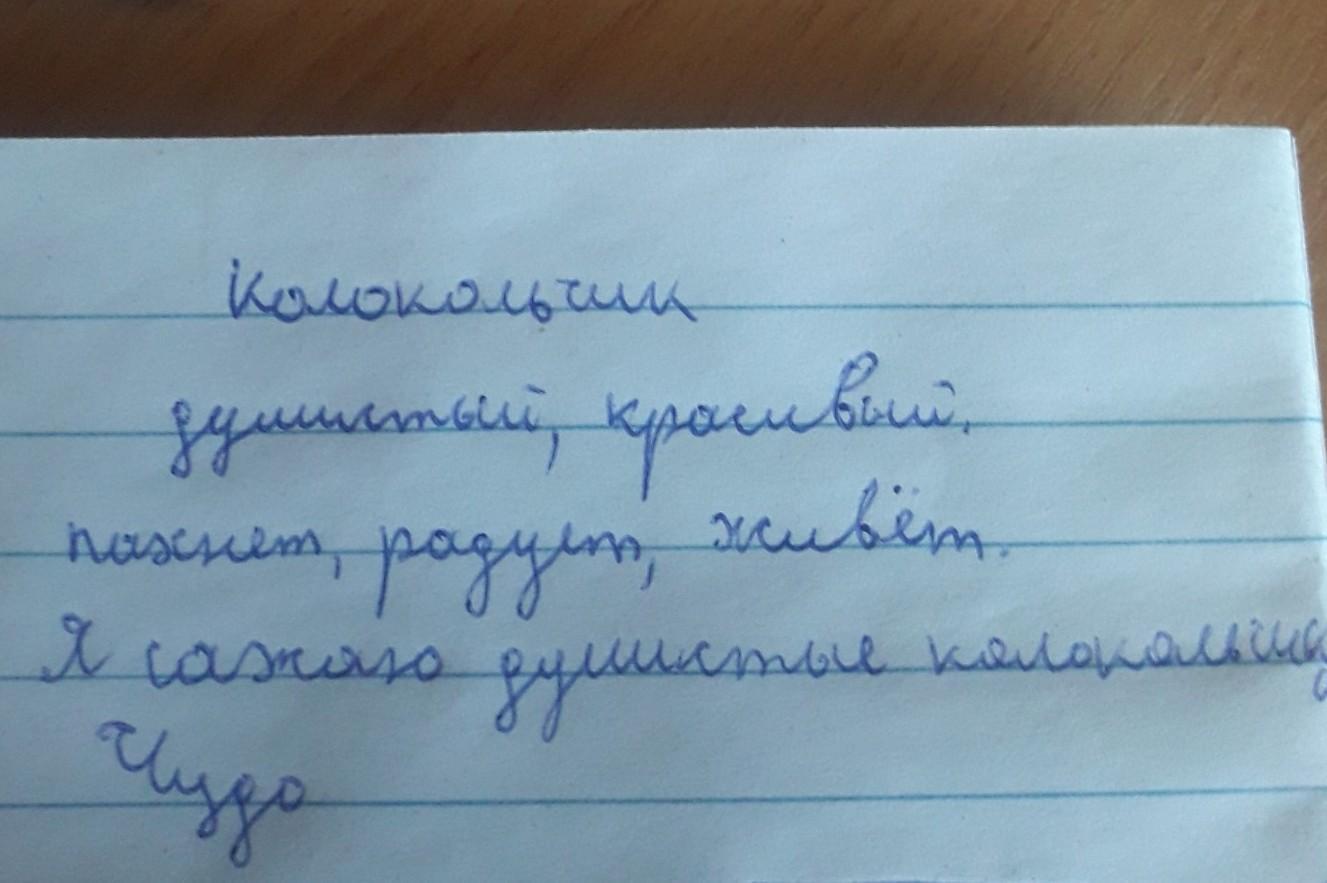 Колокольчик
душистый, красивый.
пахнет, радует, живёт.
Я сажаю душистые
Чудо